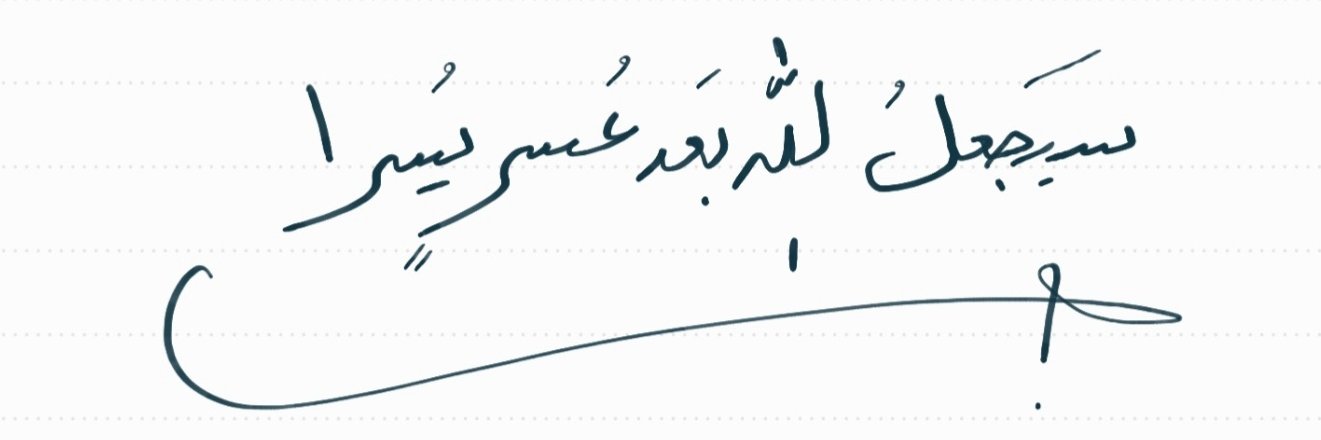 سيَجعلُ اللّٰه بَعد عُسرٍ يُسرا